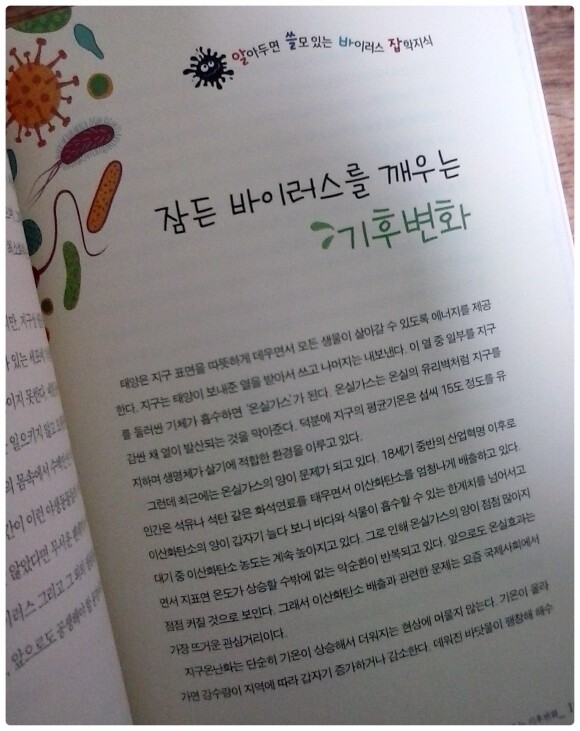 알아두면 쓸모 있는 바이러스 잡학지식
잠든 바이러스를 깨우는
기후변화
태양은 지구 표면을 따뜻하게 데우면서 모든 생물이 살아갈 수 있도록 에너지를 제공
한다. 지구는 태양이 보내준 열을 받아서 쓰고 나머지는 내보낸다. 이 열 중 일부를 지구
를 둘러싼 기체가 흡수하면 '온실가스'가 된다. 온실가스는 온실의 유리벽처럼 지구를
감싼 채 열이 발산되는 것을 막아준다. 덕분에 지구의 평균기온은 섭씨 15도 정도를 유
지하며 생명체가 살기에 적합한 환경을 이루고 있다.
그런데 최근에는 온실가스의 양이 문제가 되고 있다. 18세기 중반의 산업혁명 이후로
인간은 석유나 석탄 같은 화석연료를 태우면서 이산화탄소를 엄청나게 배출하고 있다.
이산화탄소의 양이 갑자기 늘다 보니 바다와 식물이 흡수할 수 있는 한계치를 넘어서고
대기 중 이산화탄소 농도는 계속 높아지고 있다. 그로 인해 온실가스의 양이 점점 많아지
면서 지표면 온도가 상승할 수밖에 없는 악순환이 반복되고 있다. 앞으로도 온실효과는
점점 커질 것으로 보인다. 그래서 이산화탄소 배출과 관련한 문제는 요즘 국제사회에서
가장 뜨거운 관심거리이다.
지구온난화는 단순히 기온이 상승해서 더워지는 현상에 머물지 않는다. 기온이 올라
가면 강수량이 지역에 따라 갑자기 증가하거나 감소한다. 데워진 바닷물이 팽창해 해수
기후변화